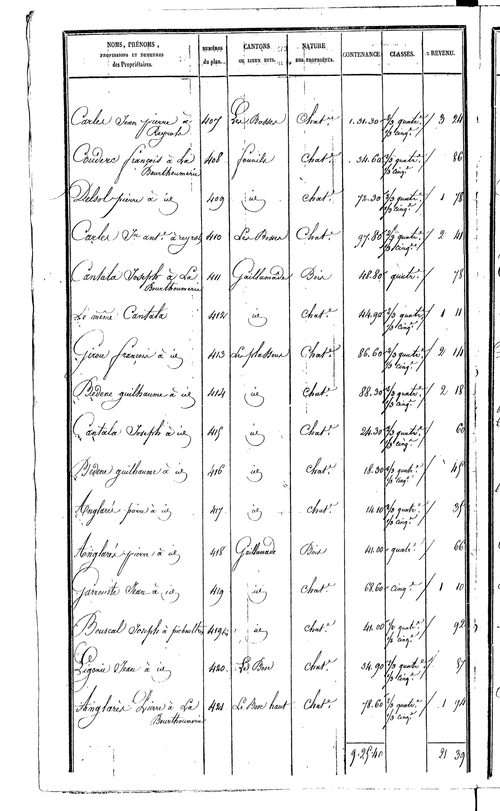 NOMS, PRÉNOMS, PROFESSIONS ET DEMEURES des Propriétaires. NUMÉROS du plan. CANTONS OU LIEUX DITS. NATURE DES PROPRIÉTÉS. CONTENANCE. CLASSES. REVENU.
Carles Jean pierre à Reyrols 407 Les Bosses Chat.r 1.31.30 2/3 quatr.e 1/3 cinq.e 3 24
Couderc françois à La Bourthoumerie 408 Chat.r 34.60 2/3 quatr.e 1/3 cinq.e 86
Delsol pierre à id 409 id chat.r 72.30 2/3 quatr.e 1/3 cinq.e 1 78
Carles J.n ant.e à reyrols 410 Les Bosses Chat.r 97.80 2/3 quatr.e 1/3 cinq.e 2 41
Cantala Joseph à La Bourthoumerie 411 Gaillamade Bois 48.80 quatr.e 78
Le même Cantala 412 id Chat.r 44.90 2/3 quatr.e 1/3 cinq.e 1 11
Girou françois à id 413 Chat.r 86.60 2/3 quatr.e 1/3 cinq.e 2 14
Bédene guilhaume à id 414 id chat.r 88.30 2/3 quatr.e 1/3 cinq.e 2 18
Cantala Joseph à id 415 id Chat.r 24.30 2/3 quatr.e 1/3 cinq.e 60
Bédene guilhaume à id 416 id chat.r 18.30 2/3 quatr.e 1/3 cinq.e 45
Anglarés pierre à id 417 id chat.r 14.10 2/3 quatr.e 1/3 cinq.e 35
Anglarés pierre à id 418 Gaillamade Bois 41.00 quatr.e 66
Jean à id 419 id Chat.r 68.60 cinq.e 1 10
Bouscal Joseph à 419 bis id chat.r 41.00 2/3 quatr.e 1/3 cinq.e 92
Ligonie Jean à id 420 Le Bose chat.r 34.90 2/3 quatr.e 1/3 cinq.e 87
Anglarés Pierre à La Bourthoumerie 421 Le Bose haut Chat.r 78.60 2/3 quatr.e 1/3 cinq.e 1 94
9.25.40 21 39